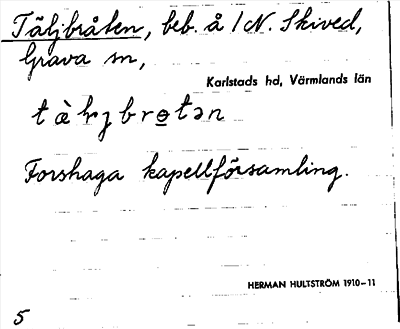 Täljbråten, beb. å 1 N. Skived,
Grava sn,
Karlstads hd, Värmlands län
Forshaga kapellförsamling.
HERMAN HULTSTRÖM 1910–11
5